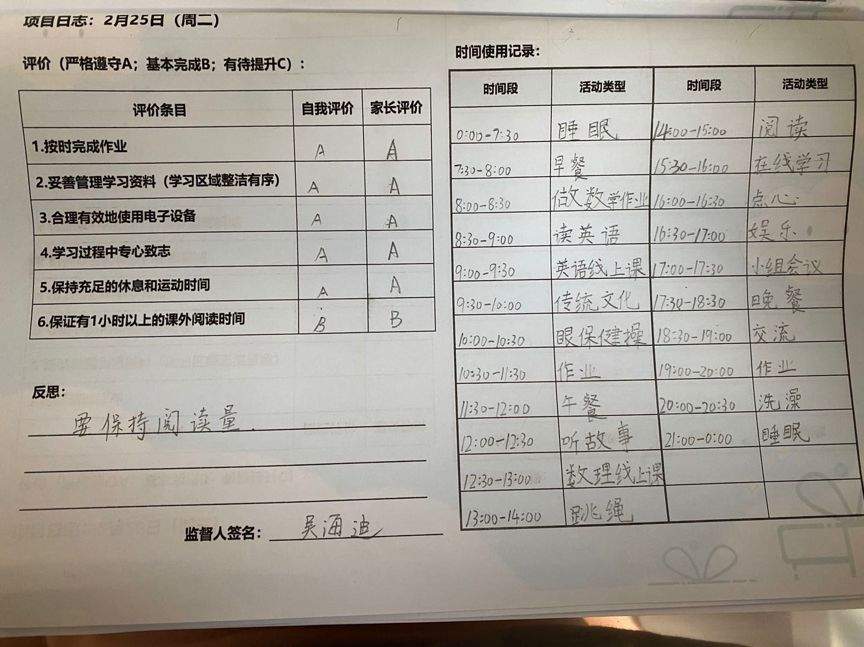 项目日志：2月25日（周二）
评价（严格遵守A；基本完成B；有待提升C）：
评价条目 自我评价 家长评价
1.按时完成作业 A A
2.妥善管理学习资料（学习区域整洁有序） A A
3.合理有效地使用电子设备 A A
4.学习过程中专心致志 A A
5.保持充足的休息和运动时间 A A
6.保证有1小时以上的课外阅读时间 B B
反思：
要保持阅读量.
监督人签名：吴海迪
时间使用记录：
时间段 活动类型 时间段 活动类型
0:00-7:30 睡眠 14:00-15:00 阅读
7:30-8:00 早餐 15:30-16:00 在线学习
8:00-8:30 做数学作业 16:00-16:30 点心
8:30-9:00 读英语 16:30-17:00 娱乐
9:00-9:30 英语线上课 17:00-17:30 小组会议
9:30-10:00 传统文化 17:30-18:30 晚餐
10:00-10:30 眼保健操 18:30-19:00 交流
10:30-11:30 作业 19:00-20:00 作业
11:30-12:00 午餐 20:00-20:30 洗澡
12:00-12:30 听故事 21:00-0:00 睡眠
12:30-13:00 数理线上课
13:00-14:00 跳绳